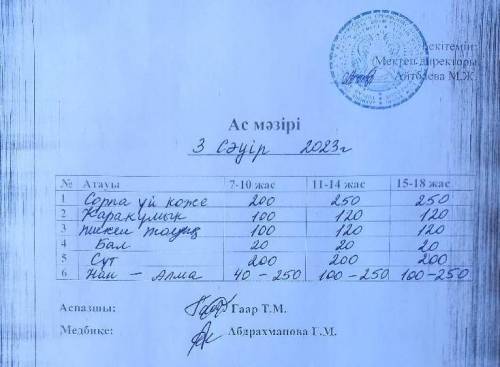 Бекітемін:
Мектеп директоры
Айтбаева М.Ж.
Ас мәзірі
3 Сәуір 2023г
№ Атауы 7-10 жас 11-14 жас 15-18 жас
1 Сорпа үй коже 200 250 250
2 Каракумык 100 120 120
3 пискен тауық 100 120 120
4 Бал 20 20 20
5 Сүт 200 200 200
6 Нан - Алма 40-250 100-250 100-250
Аспазшы: Гаар Т.М.
Медбике: Абдрахманова Г.М.